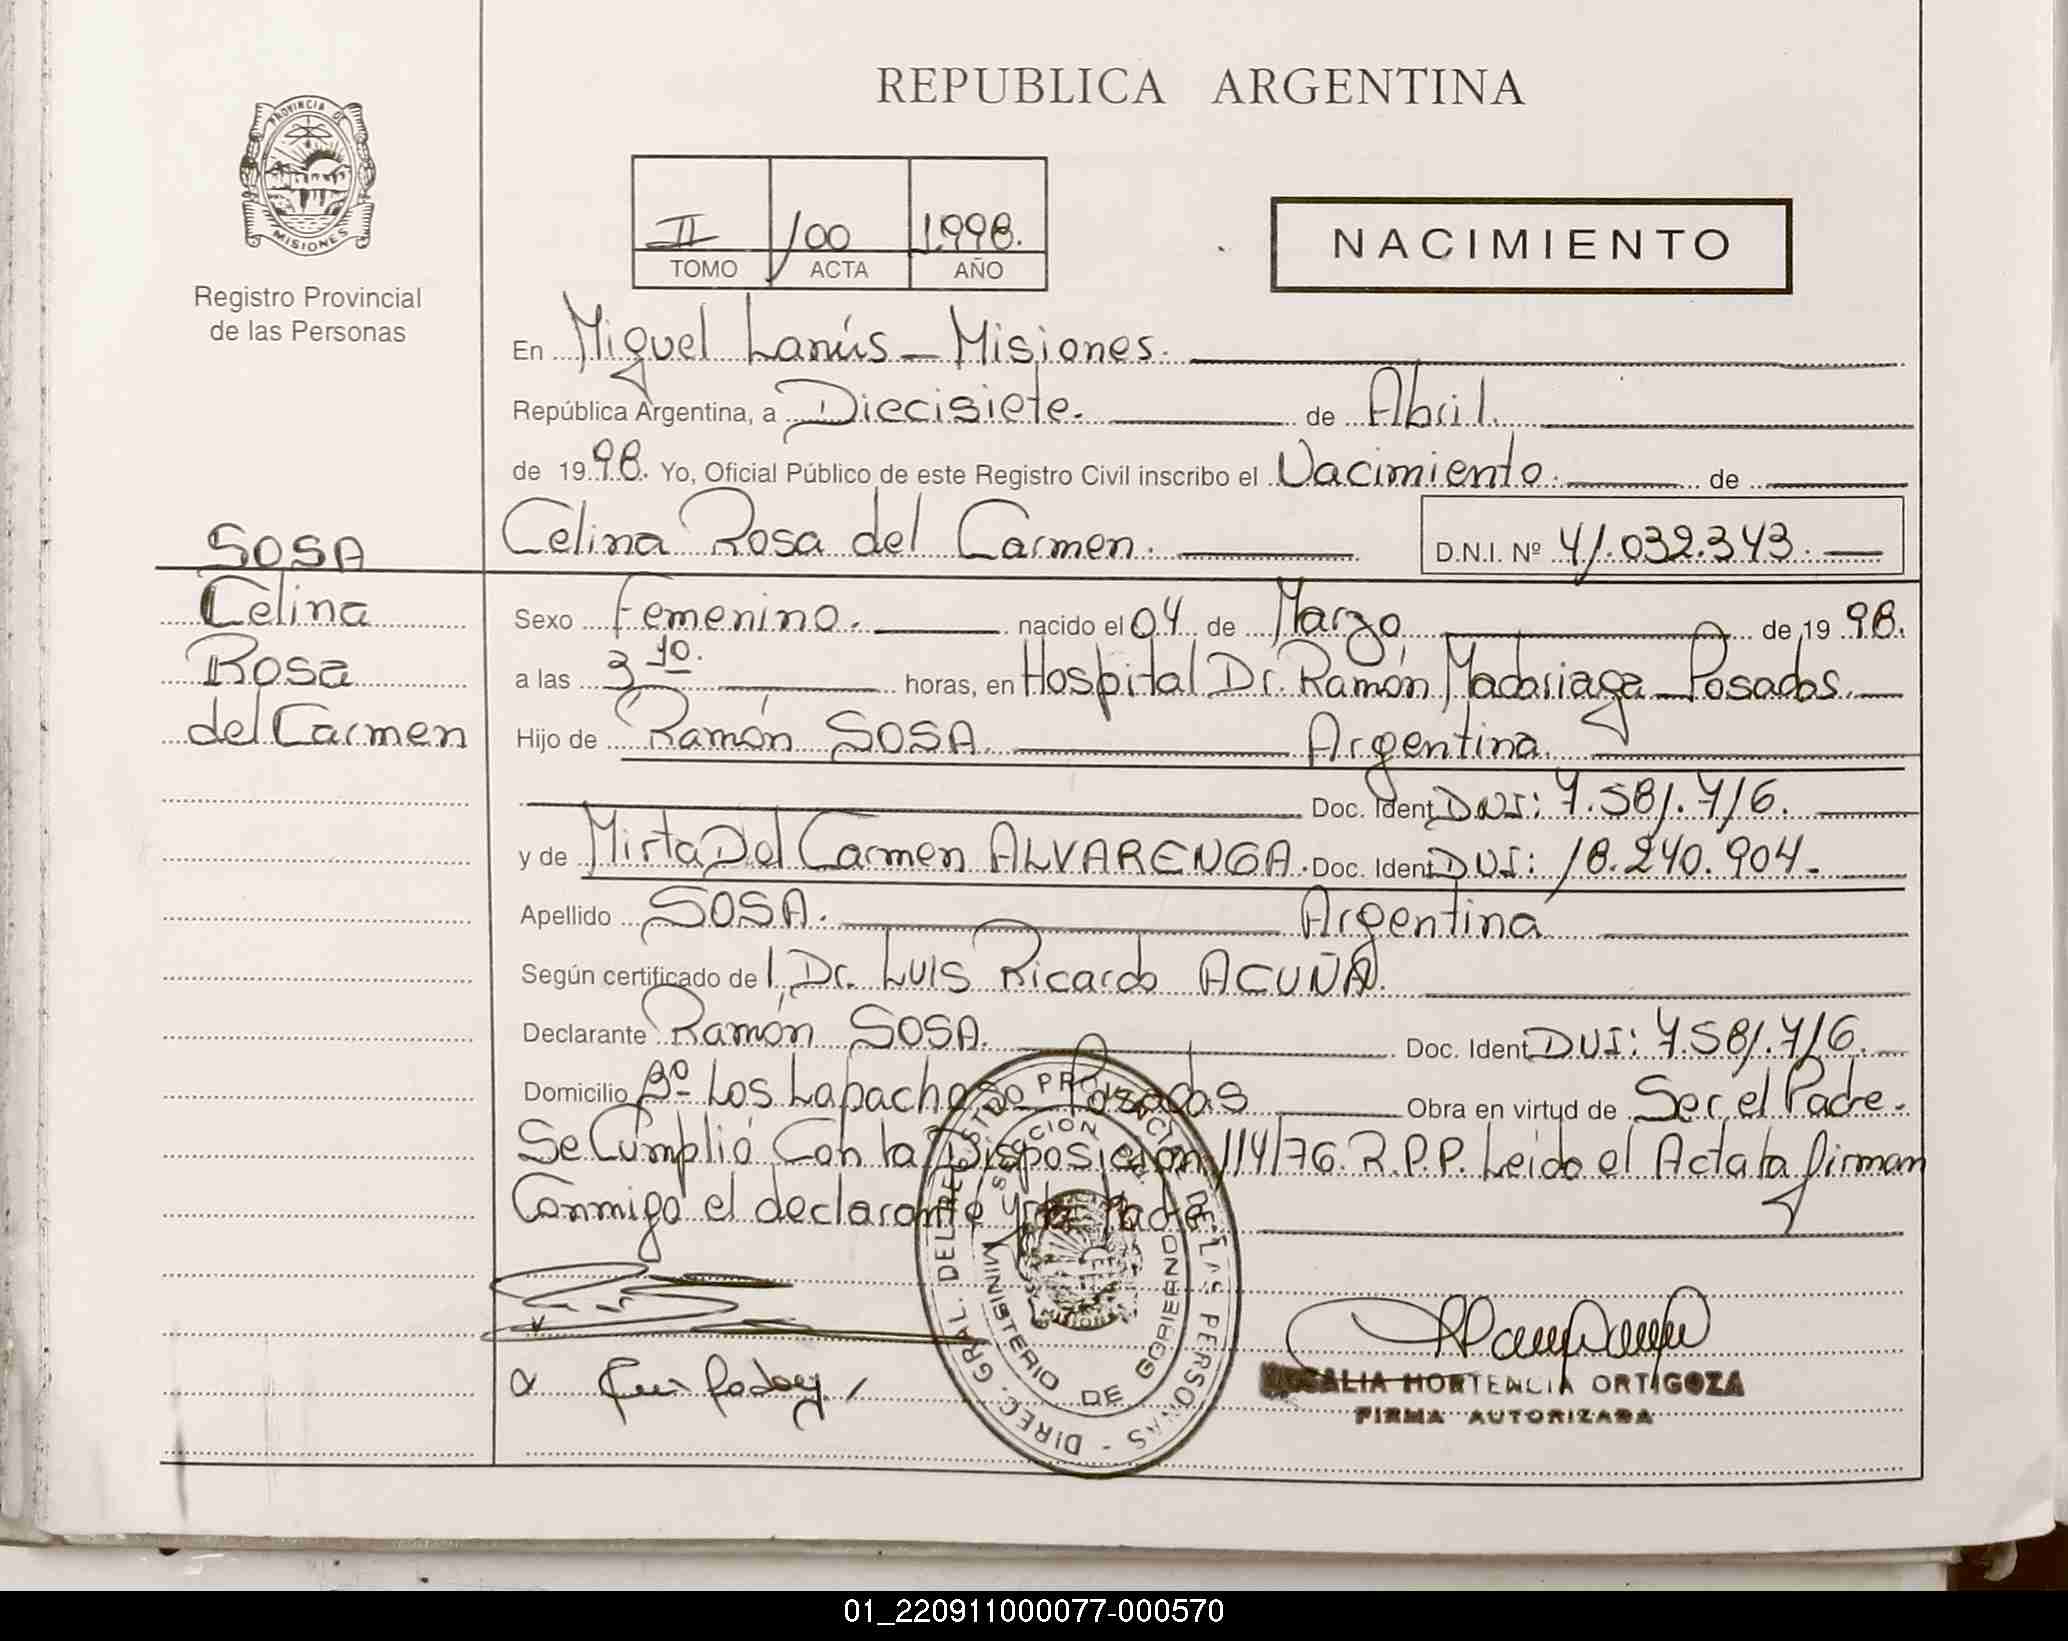 REPUBLICA ARGENTINA
PROVINCIA DE MISIONES
Registro Provincial
de las Personas
II /00 1.998.
TOMO ACTA AÑO
NACIMIENTO
En Miguel Lanús - Misiones.
República Argentina, a Diecisiete. de Abril.
de 19 98. Yo, Oficial Público de este Registro Civil inscribo el Nacimiento. de
Celina Rosa del Carmen. D.N.I. Nº 41.032.343.
SOSA
Celina
Rosa
del Carmen
Sexo Femenino. nacido el 04 de Marzo de 19 98.
a las 3 10. horas, en Hospital Dr. Ramón Madariaga - Posadas.
Hijo de Ramón SOSA. Argentina.
Doc. Ident DNI: 7.581.716.
y de Mirta Del Carmen ALVARENGA. Doc. Ident DNI: 18.240.904.
Apellido SOSA. Argentina
Según certificado de l Dr. Luis Ricardo ACUÑA.
Declarante Ramón SOSA. Doc. Ident DNI: 7.581.716.
Domicilio Bº Los Lapachos - Posadas Obra en virtud de Ser el Padre.
Se Cumplió Con la Disposición 114/76. R.P.P. Leido el Acta la firman
Conmigo el declarante y la Madre
DIREC. GRAL. DEL REGISTRO PROVINCIAL DE LAS PERSONAS -
MINISTERIO DE GOBIERNO
ROSALIA HORTENCIA ORTIGOZA
FIRMA AUTORIZADA
01_220911000077-000570